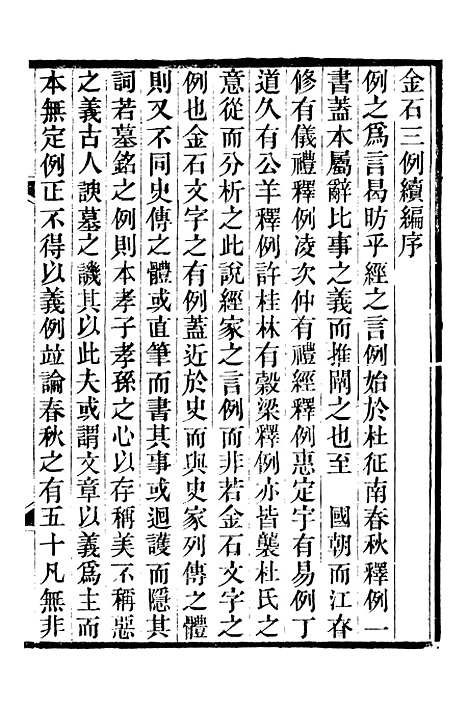 金石三例續編序
例之爲言曷昉乎經之言例始於杜征南春秋釋例一
書蓋本屬辭比事之義而推闡之也至　國朝而江眘
修有儀禮釋例凌次仲有禮經釋例惠定宇有易例丁
道久有公羊釋例許桂林有穀梁釋例亦皆襲杜氏之
意從而分析之此說經家之言例而非若金石文字之
例也金石文字之有例蓋近於史而與史家列傳之體
則又不同史傳之體或直筆而書其事或迴護而隱其
詞若墓銘之例則本孝子孝孫之心以存稱美不稱惡
之義古人諛墓之譏其以此夫或謂文章以義爲主而
本無定例正不得以義例竝論春秋之有五十凡無非